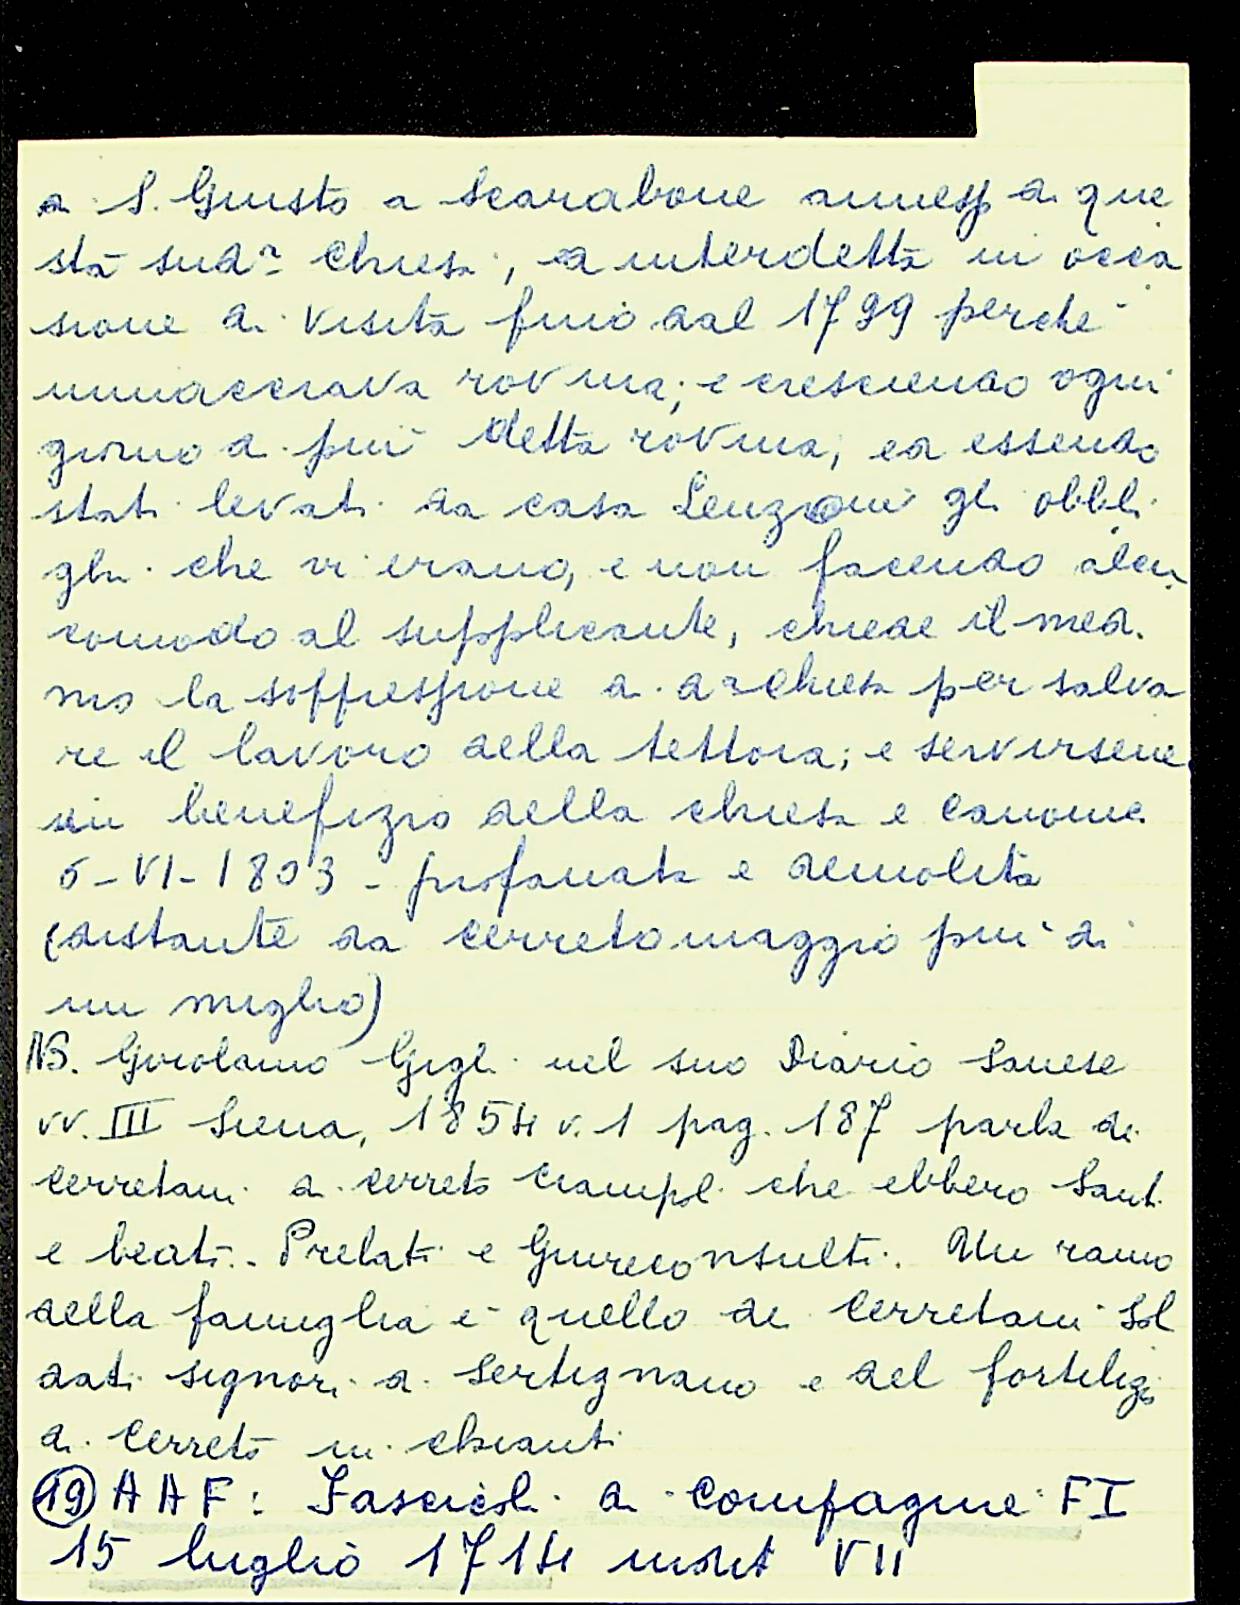 a S. Giusto a Scarabone annessa a que
sta sudª chiesa, a interdetta in occa
sione di visita fino dal 1799 perché
minacciava rovina; e crescendo ogni
giorno di più detta rovina, ed essendo
stati levati da casa Lenzoni gli obbli
ghi che vi erano, e non facendo alcu
comodo al supplicante, chiede il med.
mo la soppressione di dª chiesa per salva
re il lavoro della tettoia; e servirsene
in benefizio della chiesa e canonic
6-VI-1803 - profanata e demolita
(distante da Cerretomaggio più di
un miglio)
NB. Girolamo Gigli nel suo Diario Sanese
vv. III Siena, 1854 v. 1 pag. 187 parla di
Cerretani di Cerreto Ciampoli che ebbero Santi
e beati.. Prelati e Giureconsulti. Un ramo
della famiglia è quello dei Cerretani Sol
dati signori di Sertignano e del fortilizi
di Cerreto in Chianti
(19) AAF: Fascicoli di Compagnie FI
15 luglio 1714 VII